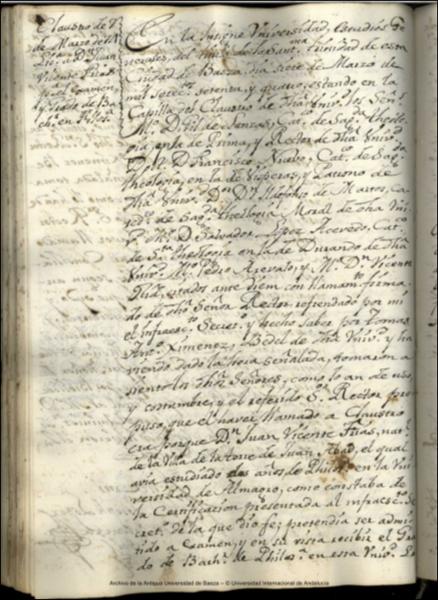 Claustro de 7
de Marzo de 74
Lic. a Dn Juan
Vicente Frias
p.a el Examen,
y Grado de Ba
chr. en Filos.a
En la Insigne Universidad, Estudios Ge
nerales, del de la Sant.ma Trinidad de esta
Ciudad de Baeza, dia siete de Marzo de
mil setecs setenta, y quatro, estando en la
Capilla, y Claustro de dha Univ.d los Señ.s
Mro. D. Gil de Cat.co de Sag.da Theolo
gia, en la de Prima, y Rector de dha Univ.d
D. Francisco Nuevo, Cat.co de Sag.da
Theologia, en la de Visperas, y Patrono de
dha Univ.d Dn Ildefonso de Martos, Ca
tedr.co de Sag.da Theologia Moral de dha Uni
Mro. D. Salvador Lopez Acevedo, Cat.co
de S.a Theologia en la de Durando de dha
Univ.d Pedro Arevalo, y Dn Vicente
citados ante diem con llamam.to firma
do de dho Señor Rector refrendado por mi
el infraesc.to Secret.o y hecho saber por Tomas
Ant.o Ximenez, Bedel de dha Univ.d y ha
viendo dado la hora señalada, tomaron a
siento los dhos Señores, como lo an de uso,
y costumbre, y el referido S.or Rector pro
puso, que el haver llamado a Claustro
era, porque Dn Juan Vicente Frias, nat.l
de la Villa de la Torre de Juan Abad, el qual
avia estudiado dos años de Philos.a en la Uni
versidad de Almagro, como constaba de
la Certificacion presentada al infraesc.to Se
cret.o de la que dio fe; pretendia ser admi
tido a Examen, y en su vista recibir el Gra
do de Bach.r de Philos.a en esta Univ.d
Archivo de la Antigua Universidad de Baeza – © Universidad Internacional de Andalucía